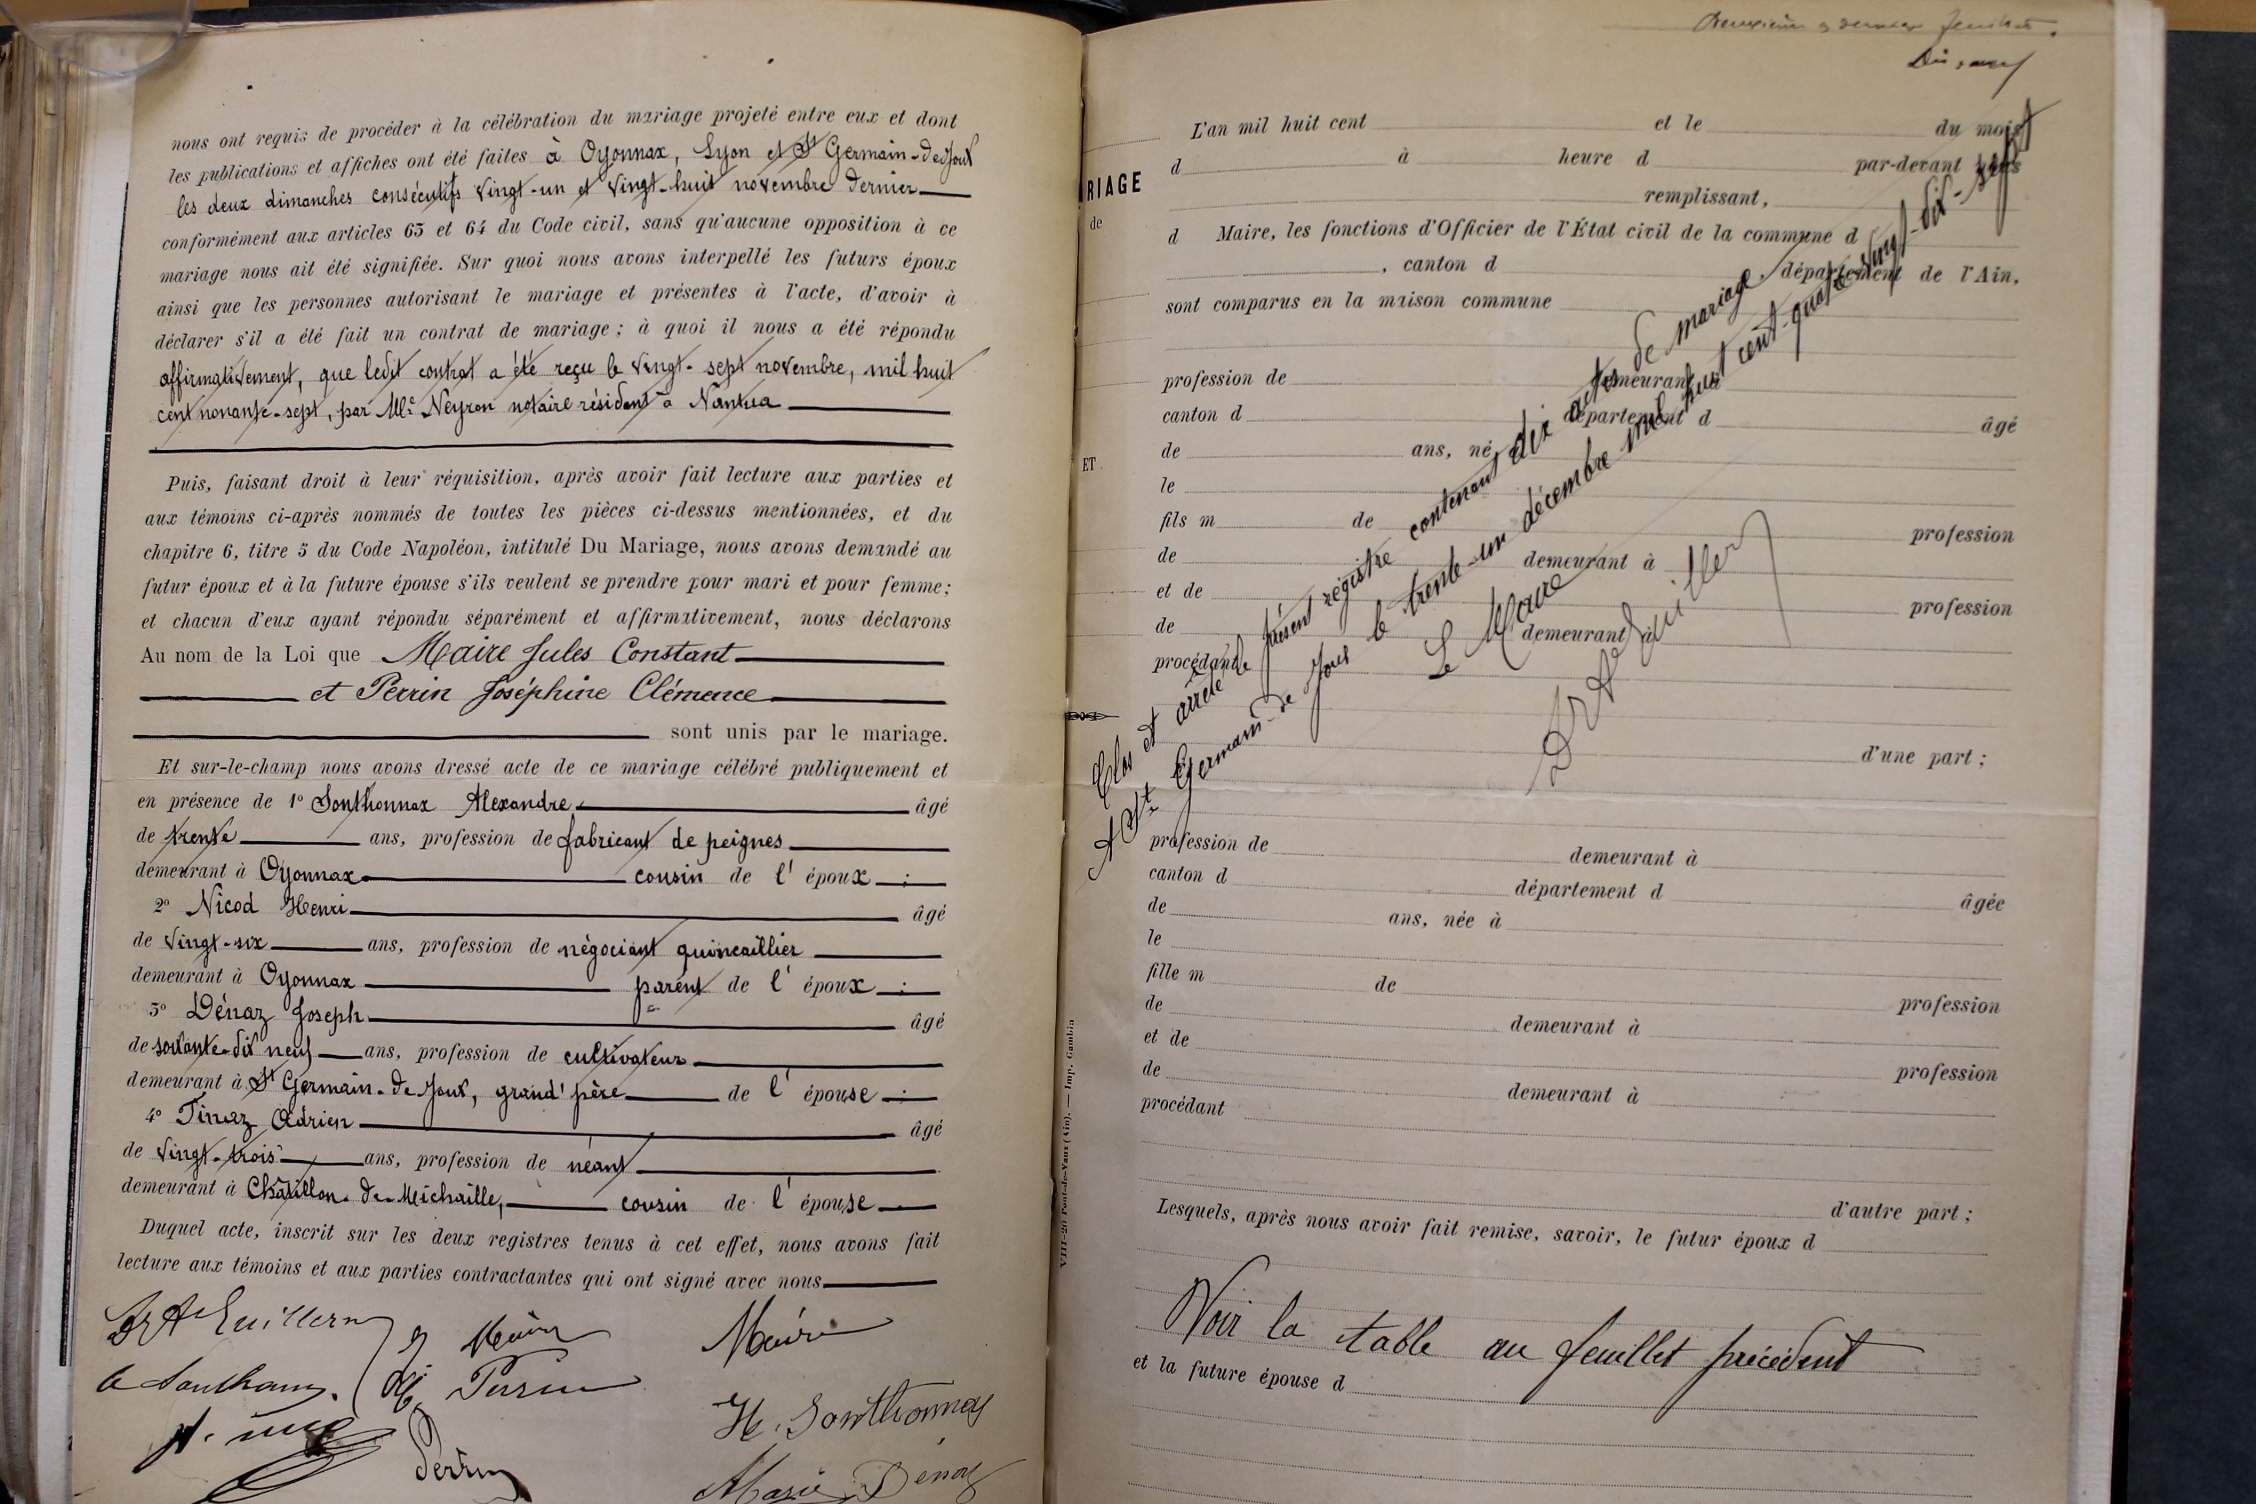 nous ont requis de procéder à la célébration du mariage projeté entre eux et dont
les publications et affiches ont été faites à Oyonnax, Lyon et St Germain-de-Joux
les deux dimanches consécutifs vingt-un et vingt-huit novembre dernier
conformément aux articles 63 et 64 du Code civil, sans qu'aucune opposition à ce
mariage nous ait été signifiée. Sur quoi nous avons interpellé les futurs époux
ainsi que les personnes autorisant le mariage et présentes à l'acte, d'avoir à
déclarer s'il a été fait un contrat de mariage ; à quoi il nous a été répondu
affirmativement, que ledit contrat a été reçu le vingt-sept novembre, mil huit
cent nonante-sept, par Me Neyron notaire résidant à Nantua
Puis, faisant droit à leur réquisition, après avoir fait lecture aux parties et
aux témoins ci-après nommés de toutes les pièces ci-dessus mentionnées, et du
chapitre 6, titre 5 du Code Napoléon, intitulé Du Mariage, nous avons demandé au
futur époux et à la future épouse s'ils veulent se prendre pour mari et pour femme ;
et chacun d'eux ayant répondu séparément et affirmativement, nous déclarons
Au nom de la Loi que Maire Jules Constant
et Perrin Joséphine Clémence
sont unis par le mariage.
Et sur-le-champ nous avons dressé acte de ce mariage célébré publiquement et
en présence de 1° Sonthonnax Alexandre âgé
de trente ans, profession de fabricant de peignes
demeurant à Oyonnax cousin de l'époux ;
2° Nicod Henri âgé
de vingt-six ans, profession de négociant quincaillier
demeurant à Oyonnax parent de l'époux ;
3° Dénaz Joseph âgé
de soixante-dix neuf ans, profession de cultivateur
demeurant à St Germain-de-Joux, grand'père de l'épouse ;
4° Tinaz Adrien âgé
de vingt-trois ans, profession de néant
demeurant à Châtillon-de-Michaille, cousin de l'épouse
Duquel acte, inscrit sur les deux registres tenus à cet effet, nous avons fait
lecture aux témoins et aux parties contractantes qui ont signé avec nous
Dr Ad Guillermet
J Maire
Maire
A Sonthonnax
Perrin
H. Sonthonnax
Perrin
Marie Dénaz
Deuxième et dernier feuillet.
MARIAGE
de
ET
L'an mil huit cent et le du mois
d à heure d par-devant nous
remplissant,
d Maire, les fonctions d'Officier de l'État civil de la commune d
, canton d département de l'Ain,
sont comparus en la maison commune
profession de demeurant à
canton d département d âgé
de ans, né
le
fils m de profession
de demeurant à
et de profession
de demeurant à
procédant
d'une part ;
Clos et arrêté le présent registre contenant dix actes de mariage
A St Germain-de-Joux le trente-un décembre mil huit cent quatre-vingt-dix-sept
Le Maire
Dr Ad Guillermet
profession de demeurant à
canton d département d âgée
de ans, née à
le
fille m de profession
de demeurant à
et de profession
de demeurant à
procédant
d'autre part ;
Lesquels, après nous avoir fait remise, savoir, le futur époux d
Voir la table au feuillet précédent
et la future épouse d
VIII-20 Pont-de-Vaux (Ain). — Imp. Gambin